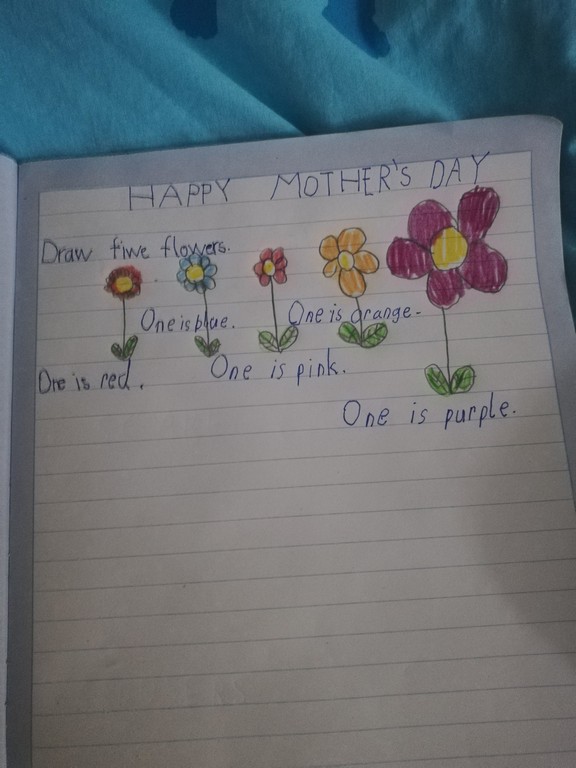 HAPPY MOTHER'S DAY
Draw fiwe flowers.
One is blue.
One is orange.
One is red.
One is pink.
One is purple.